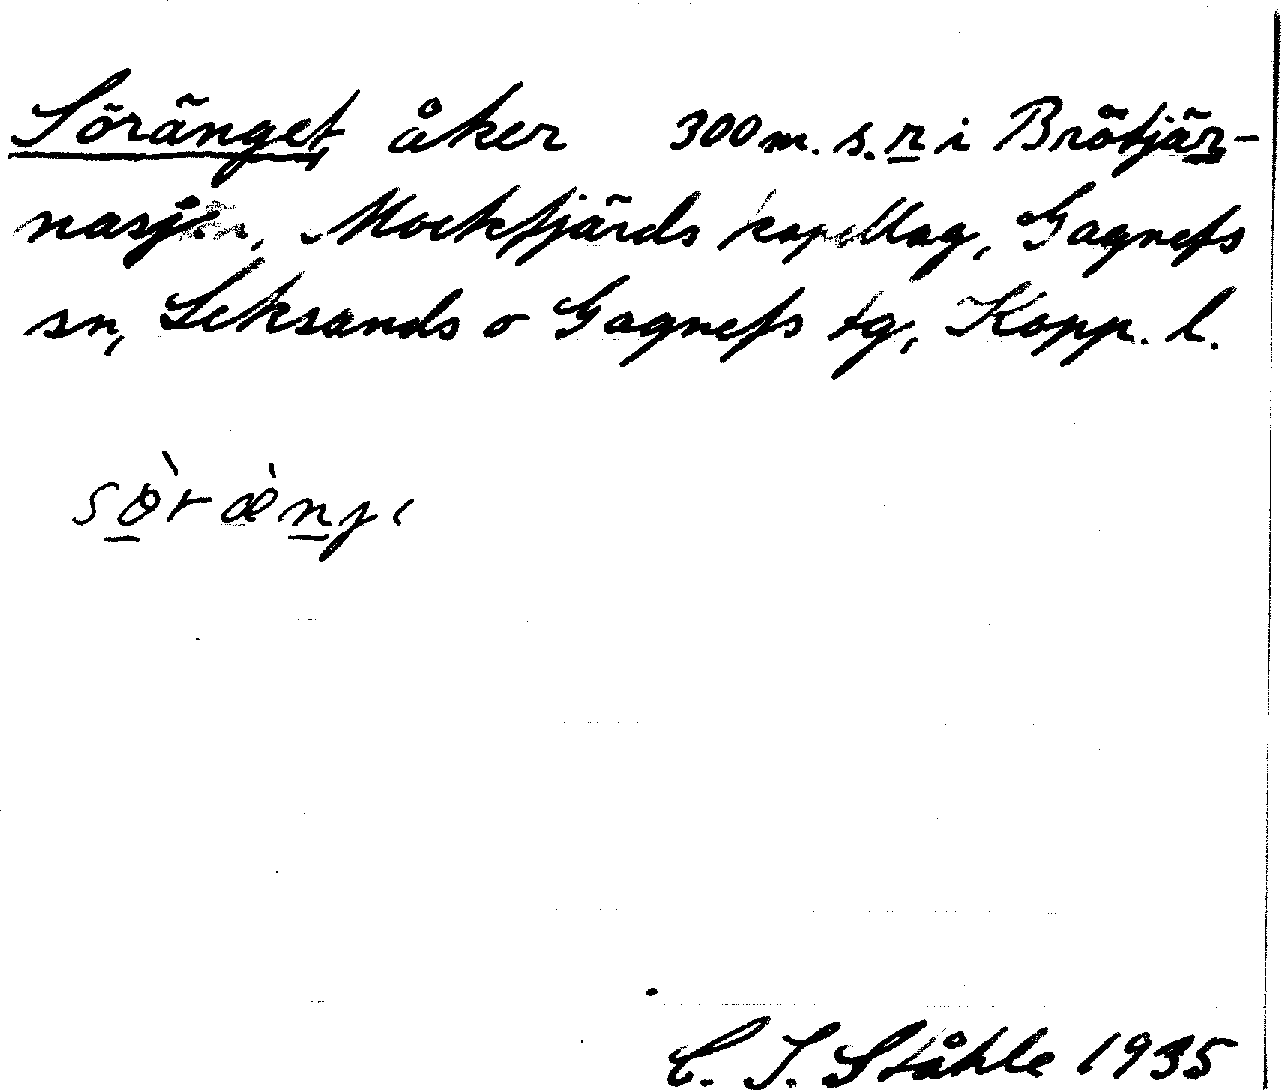 Söränget, åker 300 m. s. n i Brötjär-
nasjön, Mockfjärds kapellag, Gagnefs
sn, Leksands o Gagnefs tg, Kopp. l.
C. I. Ståhle 1935